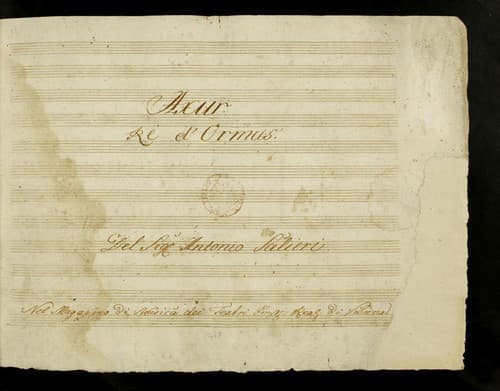 Axur
Rè d'Ormus.
Del Sigr Antonio Salieri
Nel Magazino di Musica dei Teatri di Vienna